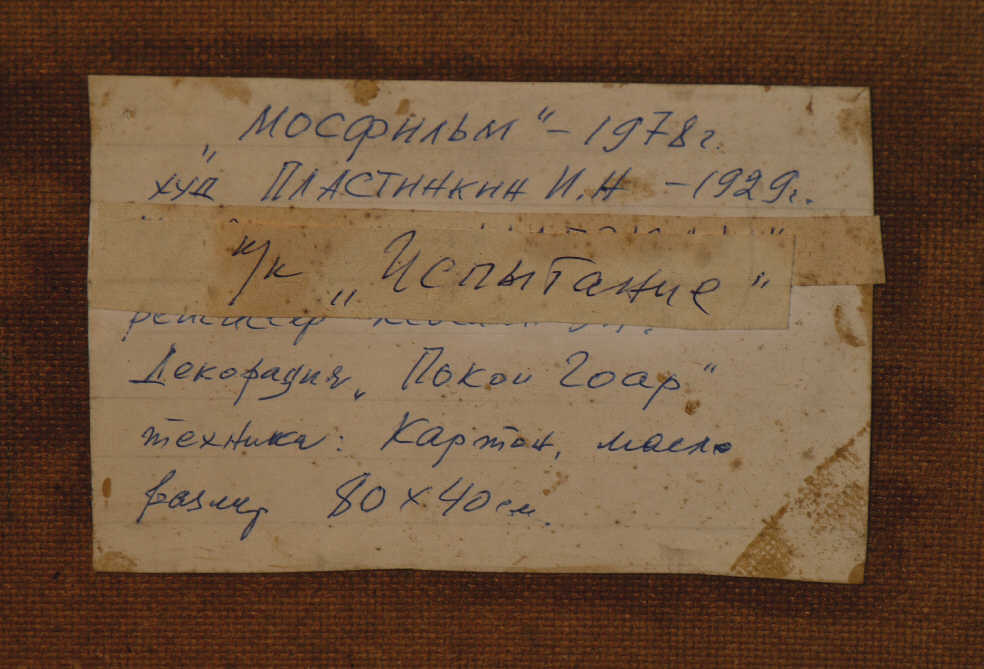 „Мосфильм" – 1978г.
худ Пластинкин И.Н – 1929г.
к/к „Испытание"
режиссер
Декорация „Покои Гоар"
техника: Картон, масло
размер 80х40см.